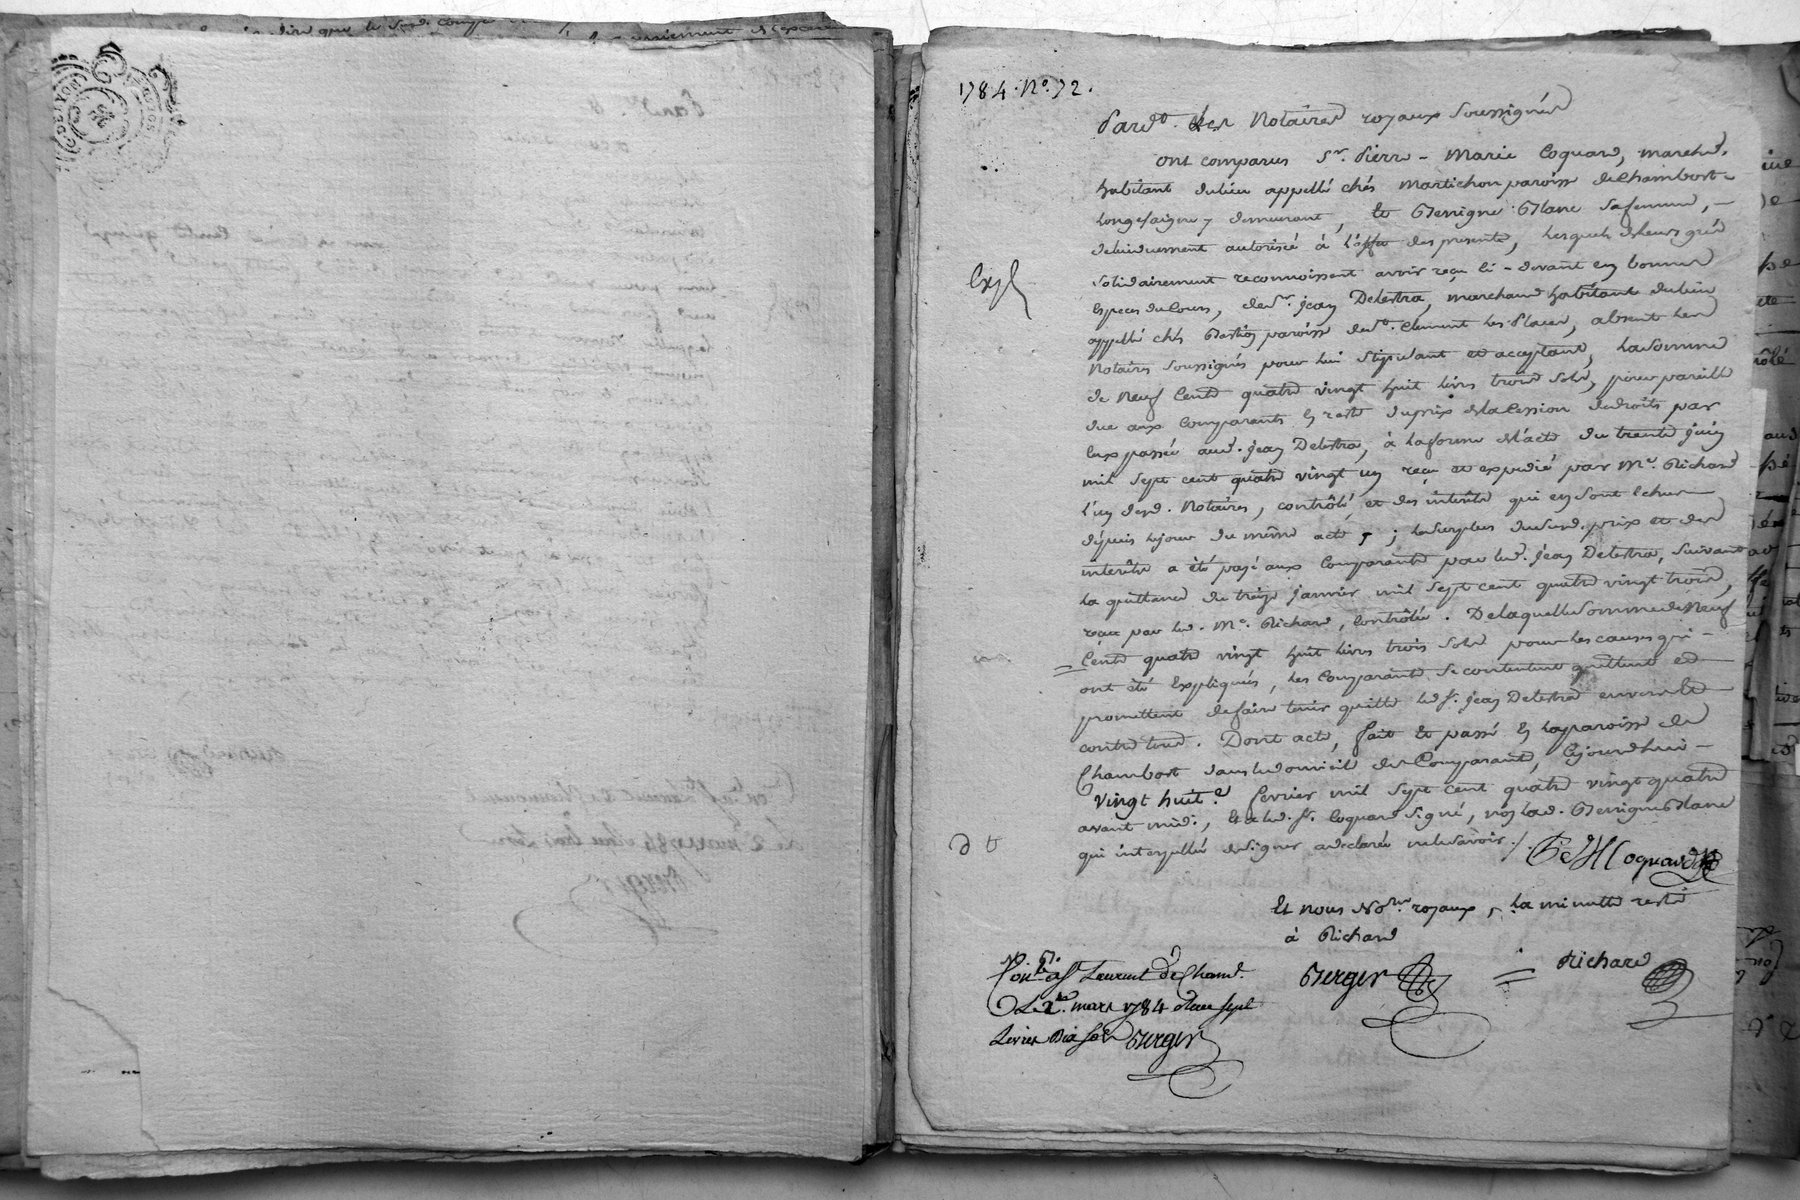 1784. N°. 72.
Pardt. Les Notaires royaux Soussignés
ont comparus Sr. Pierre-Marie Coquard, marchd.
habitant du lieu appellé chés Martichon paroisse de Chambost-
Longesaigne y demeurant, Et Benigne Blanc sa femme, -
de lui duement autorisée à l'éffet des presentes, Lesquels de leurs grés
Solidairement reconnoissent avoir reçu ci-devant en bonnes
Especes du Cours, de Sr. jean Delestra, marchand habitant du lieu
appellé chés paroisse de St. Clement Les Places, absent Les
Notaires Soussignés pour lui Stipulant et acceptant, La Somme
de Neuf Cents quatre vingt huit livres trois Sols, pour pareille
due aux Comparants En reste du prix de la Cession de droits par
Eux passée aud. jean Delestra, à la forme de l'acte du trente juin
mil Sept cent quatre vingt un reçu et expedié par Me. Richard
L'un desd. Notaires, contrôlé, et des interêts qui en Sont Echus
dépuis le jour du même acte ; Le Surplus du Susd. prix et des
interêts a été payé aux Comparants par led. jean Delestra, Suivant
La quittance du treize janvier mil Sept cent quatre vingt trois,
reçue par led. Me. Richard, Contrôlée. De laquelle Somme de Neuf
Cents quatre vingt huit livres trois Sols pour les causes qui -
ont été Expliquées, Les Comparants Se contentent quittent et
promettent de faire tenir quitte led. Sr. jean Delestra envers et
contre tous. Dont acte, fait Et passé En la paroisse de
Chambost dans le domicile des Comparants, Cejourdhui -
vingt huit. fevrier mil Sept cent quatre vingt quatre
avant midi, Et a led. Sr. Coquard Signé, non lad. Benigne Blanc
qui interpellée de Signer a declarée ne le Savoir ./.
Coquard
Et nous Nores. royaux, La minutte restée
à Richard
Berger = Richard
Conlé. à St. Laurent de Cham.
Le 2. mars 1784 Reçu Sept
Livres Dix Sols Berger
Exp